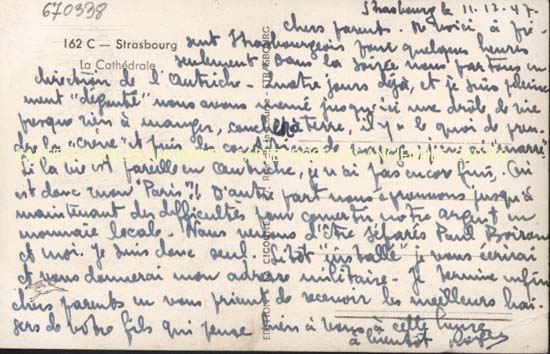 670338
Strasbourg le 11-12-47.
162 C — Strasbourg
La Cathédrale
chers parents. Me voici à pré-
sent Strasbourgeois pour quelques heures
seulement. Dans la soirée nous partons en
direction de l'Autriche. Quatre jours déjà, et je suis pleine-
ment "dégouté" nous avons mené jusqu'ici une drôle de vie
presque rien à manger, couché à terre, il y a de quoi pren-
dre la "crève" et puis les conditions de
Si la vie est pareille en Autriche, je n'ai pas encore fini. Où
est donc mon "Paris"!! D'autre part nous éprouvons jusqu'à
maintenant des difficultés pour convertir notre argent en
monnaie locale. Nous venons d'être séparés Paul
et moi. Je suis donc seul. Sitôt "installé" je vous écrirai
et vous donnerai mon adresse militaire. Je termine enfin
chers parents en vous priant de recevoir les meilleurs bai-
sers de votre fils qui pense bien à vous à cette heure
à bientôt
EDITION STRASBOURG